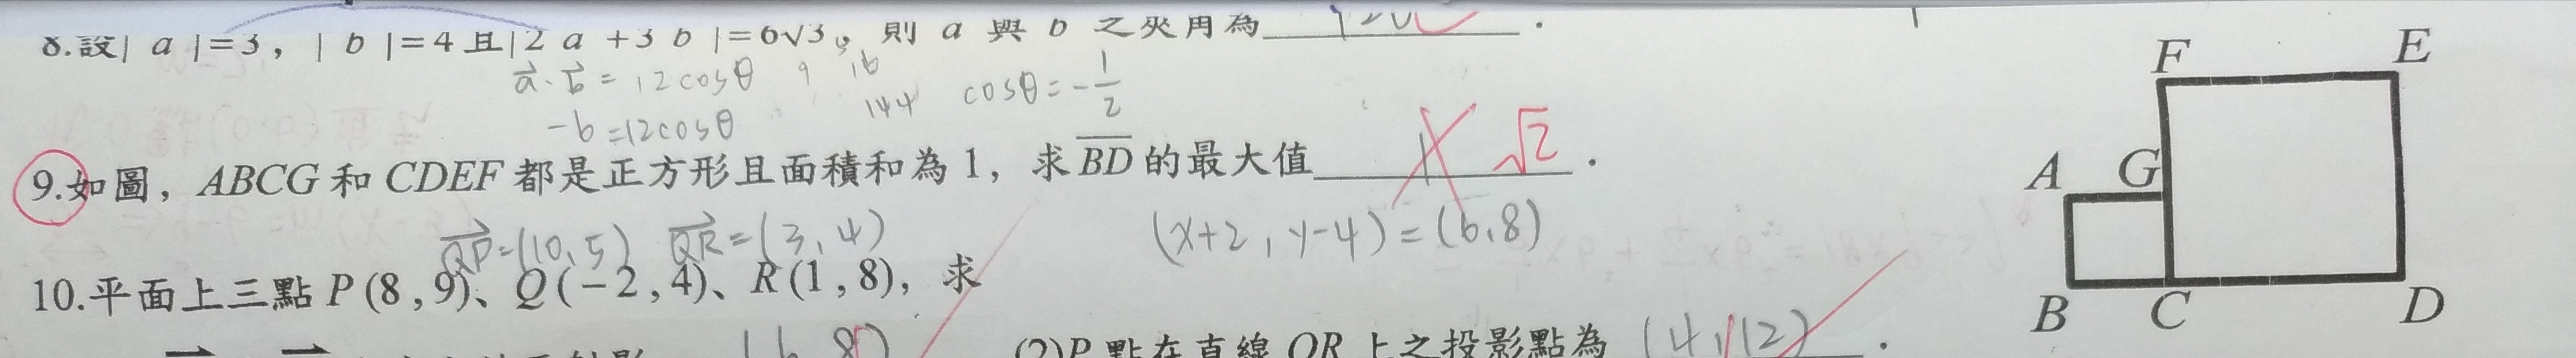 8.設| a |=3，| b |=4且|2 a +3 b |=6√3，則 a 與 b 之夾角為 120 .
a⃗·b⃗ = 12cosθ 9 16
144 cosθ=-1/2
-6=12cosθ
9.如圖，ABCG和CDEF都是正方形且面積和為1，求BD的最大值 1 √2 .
QP=(10,5) QR=(3,4)
(x+2, y-4)=(6,8)
10.平面上三點P(8,9)、Q(-2,4)、R(1,8)，求
(6,8)
(2)P點在直線QR上之投影點為 (4,12) .
F E
A G
B C D